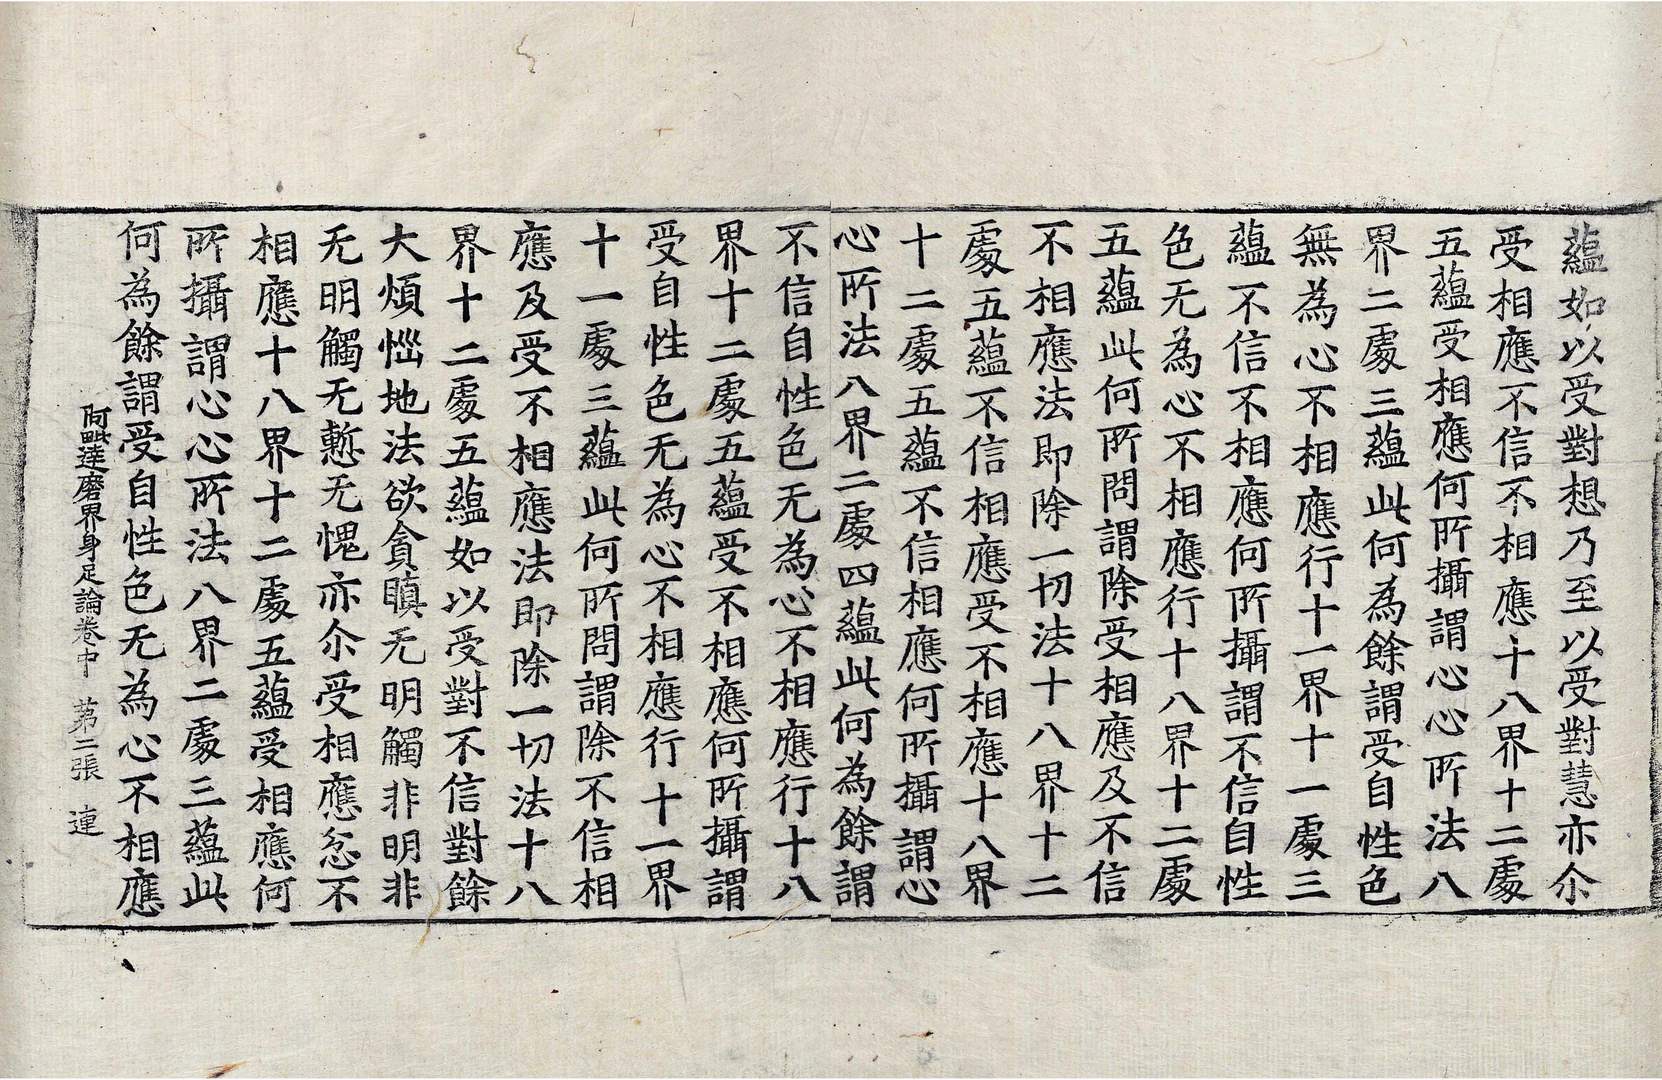 蘊如以受對想乃至以受對慧亦尒
受相應不信不相應十八界十二處
五蘊受相應何所攝謂心心所法八
界二處三蘊此何為餘謂受自性色
無為心不相應行十一界十一處三
蘊不信不相應何所攝謂不信自性
色无為心不相應行十八界十二處
五蘊此何所問謂除受相應及不信
不相應法即除一切法十八界十二
處五蘊不信相應受不相應十八界
十二處五蘊不信相應何所攝謂心
心所法八界二處四蘊此何為餘謂
不信自性色无為心不相應行十八
界十二處五蘊受不相應何所攝謂
受自性色无為心不相應行十一界
十一處三蘊此何所問謂除不信相
應及受不相應法即除一切法十八
界十二處五蘊如以受對不信對餘
大煩惱地法欲貪瞋无明觸非明非
无明觸无慙无愧亦尒受相應忿不
相應十八界十二處五蘊受相應何
所攝謂心心所法八界二處三蘊此
何為餘謂受自性色无為心不相應
阿毗達磨界身足論卷中 第二張 連